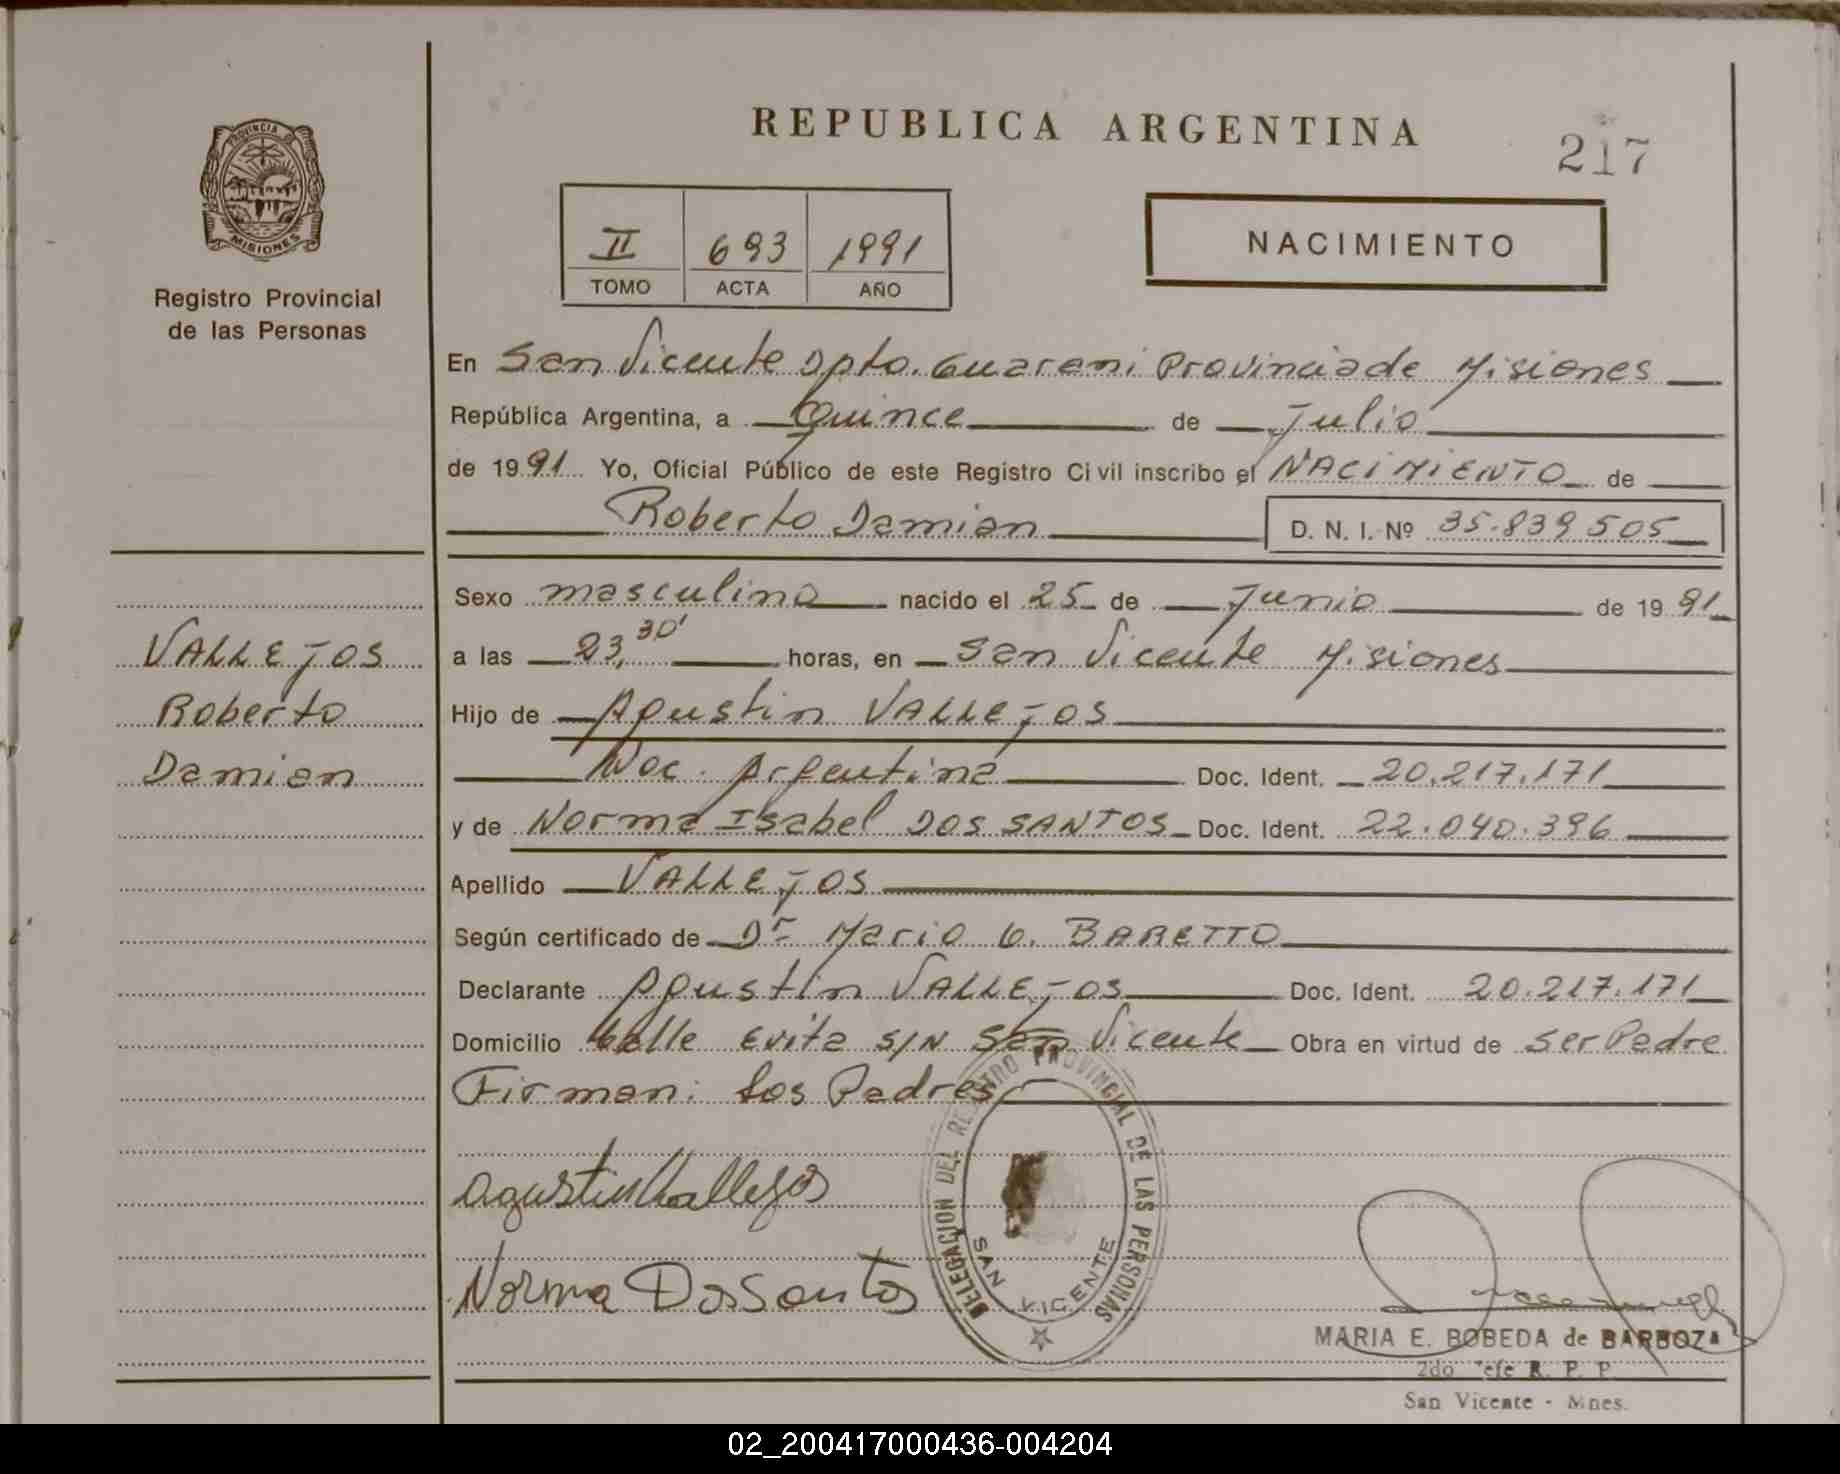 REPUBLICA ARGENTINA
217
PROVINCIA D
MISIONES
Registro Provincial
de las Personas
II 693 1991
TOMO ACTA AÑO
NACIMIENTO
En San Vicente Dpto. Guarani Provincia de Misiones
República Argentina, a Quince de Julio
de 1991 Yo, Oficial Público de este Registro Civil inscribo el NACIMIENTO de
Roberto Damian D. N. I. Nº 35.839505
Sexo masculino nacido el 25 de Junio de 1991
a las 23,30' horas, en San Vicente Misiones
Hijo de Agustin VALLEJOS
Nac. Argentina Doc. Ident. 20.217.171
y de Norma Isabel DOS SANTOS Doc. Ident. 22.040.396
Apellido VALLEJOS
Según certificado de Dr Mario G. BARETTO
Declarante Agustin VALLEJOS Doc. Ident. 20.217.171
Domicilio Calle Evita S/N San Vicente Obra en virtud de ser Padre
Firman: Los Padres
VALLEJOS
Roberto
Damian
Agustin Vallejos
Norma Dos Santos
DELEGACION DEL REGISTRO PROVINCIAL DE LAS PERSONAS
SAN VICENTE
MARIA E. BOBEDA de BARBOZA
2do Jefe R. P. P.
San Vicente - Mnes.
02_200417000436-004204